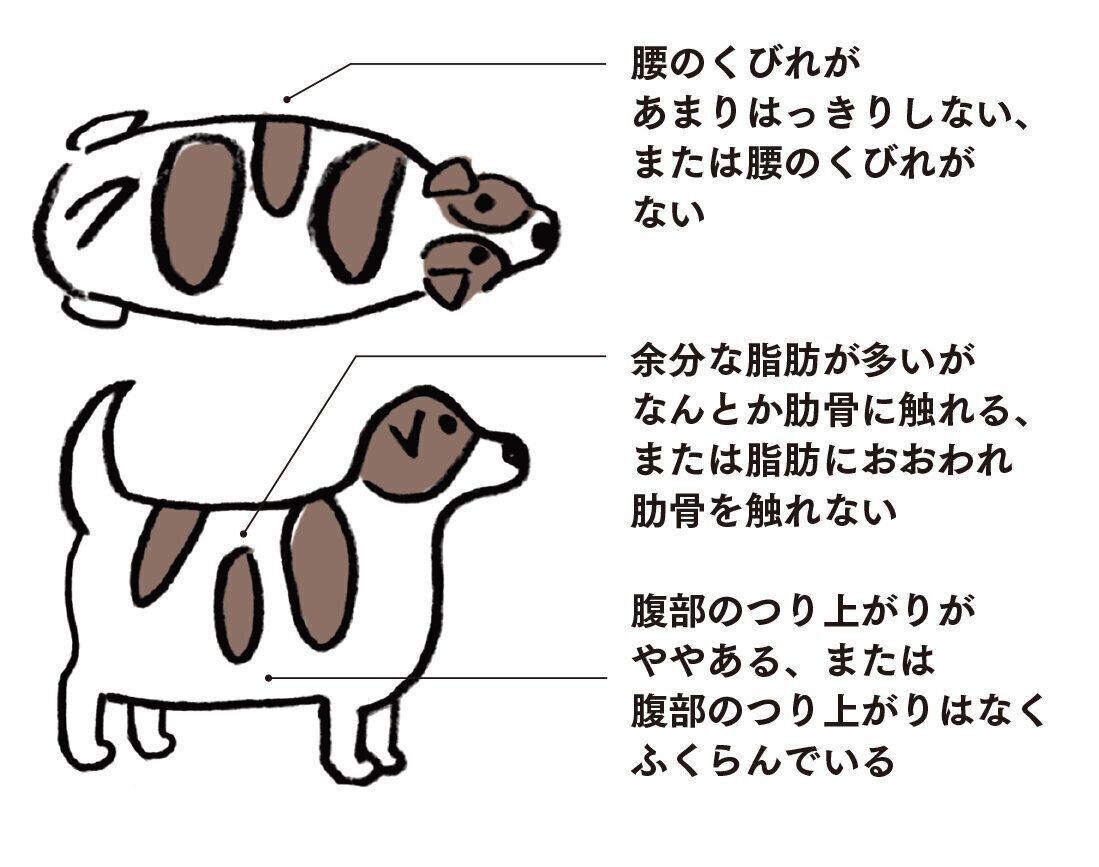 腰のくびれが
あまりはっきりしない、
または腰のくびれが
ない
余分な脂肪が多いが
なんとか肋骨に触れる、
または脂肪におおわれ
肋骨を触れない
腹部のつり上がりが
ややある、または
腹部のつり上がりはなく
ふくらんでいる